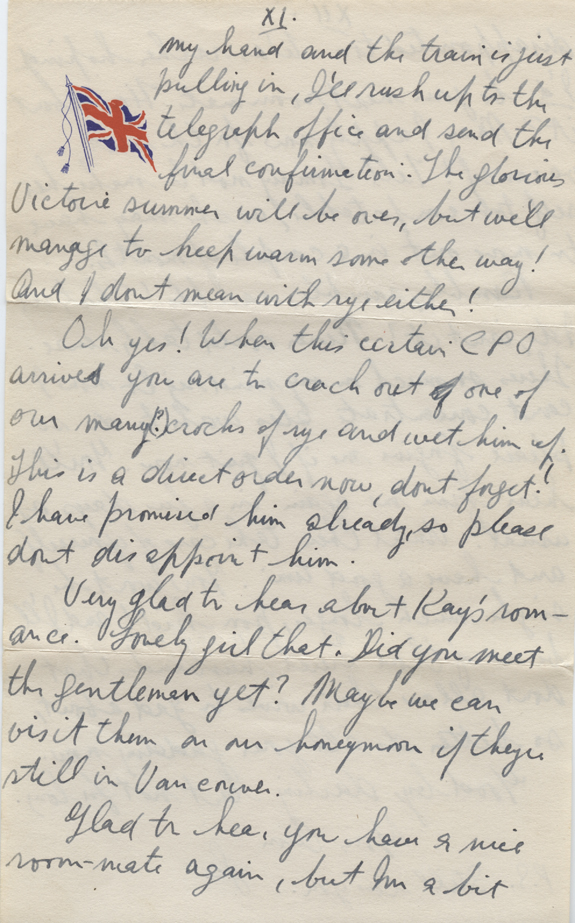 XI.
my hand and the train is just
pulling in, I'll rush up to the
telegraph office and send the
final confirmation. The glorious
Victoria summer will be over, but we'll
manage to keep warm some other way!
And I don't mean with rye either!
Oh yes! When this certain CPO
arrives you are to crack out one of
our many(?) crocks of rye and wet him up.
This is a direct order now, dont forget!
I have promised him already, so please
dont disappoint him.
Very glad to hear about Kay's rom-
ance. Lovely girl that. Did you meet
the gentleman yet? Maybe we can
visit them on our honeymoon if they're
still in Vancouver.
Glad to hear you have a nice
room-mate again, but I'm a bit